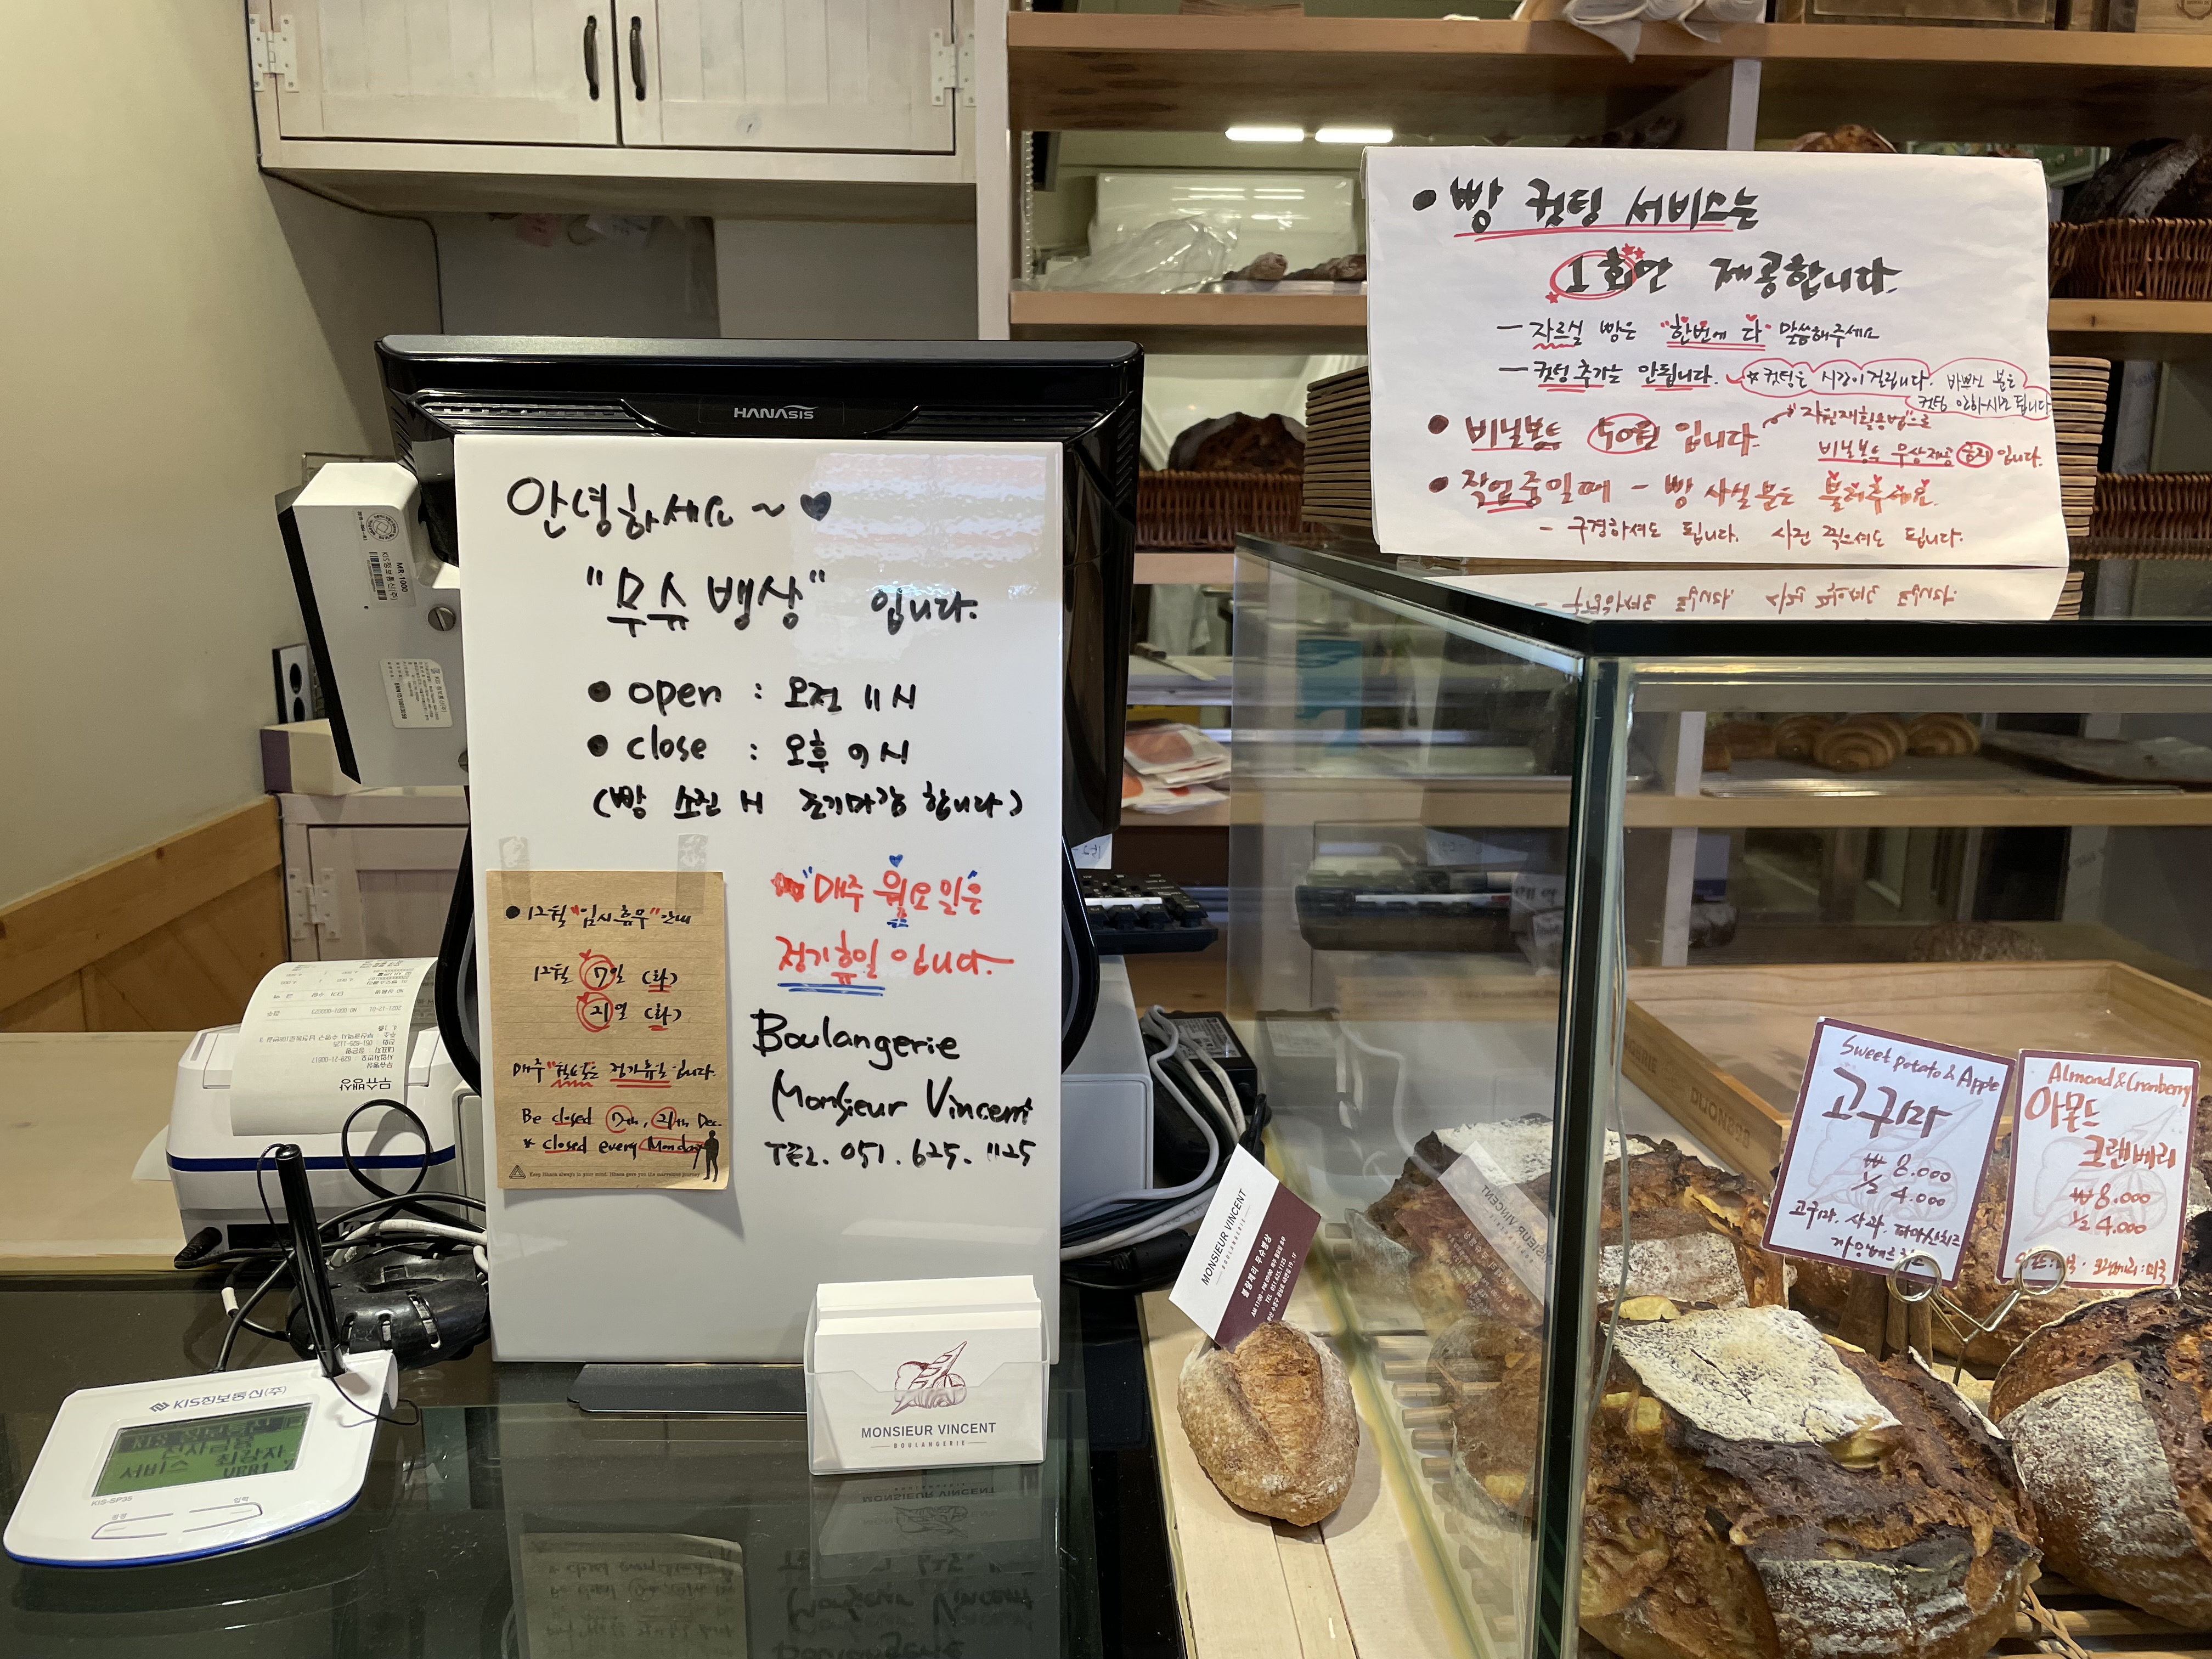 HANASIS
안녕하세요~♥
"무슈뱅상" 입니다.
● open : 오전 11시
● close : 오후 9시
(빵 소진시 조기마감 합니다)
"매주 월요일"은
정기휴일 입니다.
Boulangerie
Monsieur Vincent
TEL. 051. 625. 1125
● 12월 "임시휴무" 안내
12월 7일 (화)
21일 (화)
매주 "월요일"은 정기휴일입니다.
Be closed 7th, 21th Dec.
* closed every Monday
● 빵 컷팅 서비스는
1회만 제공합니다.
- 자르실 빵은 "한번에 다" 말씀해주세요
- 컷팅 추가는 안됩니다.
☆컷팅은 시간이 걸립니다. 바쁘신 분은
컷팅 안하시면 됩니다
● 비닐봉투 50원 입니다.
"자원재활용법"으로
비닐봉투 무상제공 금지 입니다.
● 작업중일때 - 빵 사실분은 불러주세요.
- 구경하셔도 됩니다. 사진 찍으셔도 됩니다.
Sweet potato & Apple
고구마
₩ 8.000
½ 4.000
고구마, 사과, 파마산치즈
까망베르치즈
Almond & Cranberry
아몬드
크랜베리
₩ 8.000
½ 4.000
MONSIEUR VINCENT
BOULANGERIE
블랑제리 무슈뱅상
MONSIEUR VINCENT
BOULANGERIE
무슈뱅상
MR-1000
KIS정보통신(주)
KIS정보통신(주)
서비스 최강자
KIS-SP35